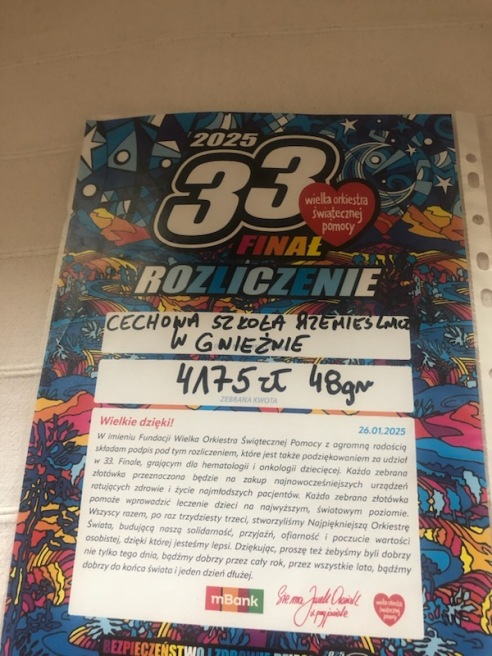 2025
33
wielka orkiestra
świątecznej
pomocy
FINAŁ
ROZLICZENIE
CECHOWA SZKOŁA RZEMIEŚLNICZ
W GNIEŹNIE
4175 zł 48gr
ZEBRANA KWOTA
Wielkie dzięki!
26.01.2025
W imieniu Fundacji Wielka Orkiestra Świątecznej Pomocy z ogromną radością
składam podpis pod tym rozliczeniem, które jest także podziękowaniem za udział
w 33. Finale, grającym dla hematologii i onkologii dziecięcej. Każda zebrana
złotówka przeznaczona będzie na zakup najnowocześniejszych urządzeń
ratujących zdrowie i życie najmłodszych pacjentów. Każda zebrana złotówka
pomoże wprowadzić leczenie dzieci na najwyższym, światowym poziomie.
Wszyscy razem, po raz trzydziesty trzeci, stworzyliśmy Najpiękniejszą Orkiestrę
Świata, budującą naszą solidarność, przyjaźń, ofiarność i poczucie wartości
osobistej, dzięki której jesteśmy lepsi. Dziękując, proszę też żebyśmy byli dobrzy
nie tylko tego dnia, bądźmy dobrzy przez cały rok, przez wszystkie lata, bądźmy
dobrzy do końca świata i jeden dzień dłużej.
mBank
wielka orkiestra
świątecznej
pomocy
BEZPIECZEŃSTWO I ZDROWIE DZIECI 2025